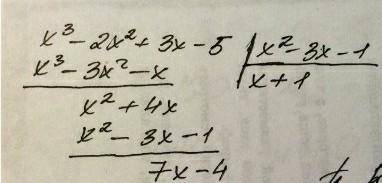 x³ - 2x² + 3x - 5 | x² - 3x - 1
x³ - 3x² - x | x + 1
x² + 4x
x² - 3x - 1
7x - 4